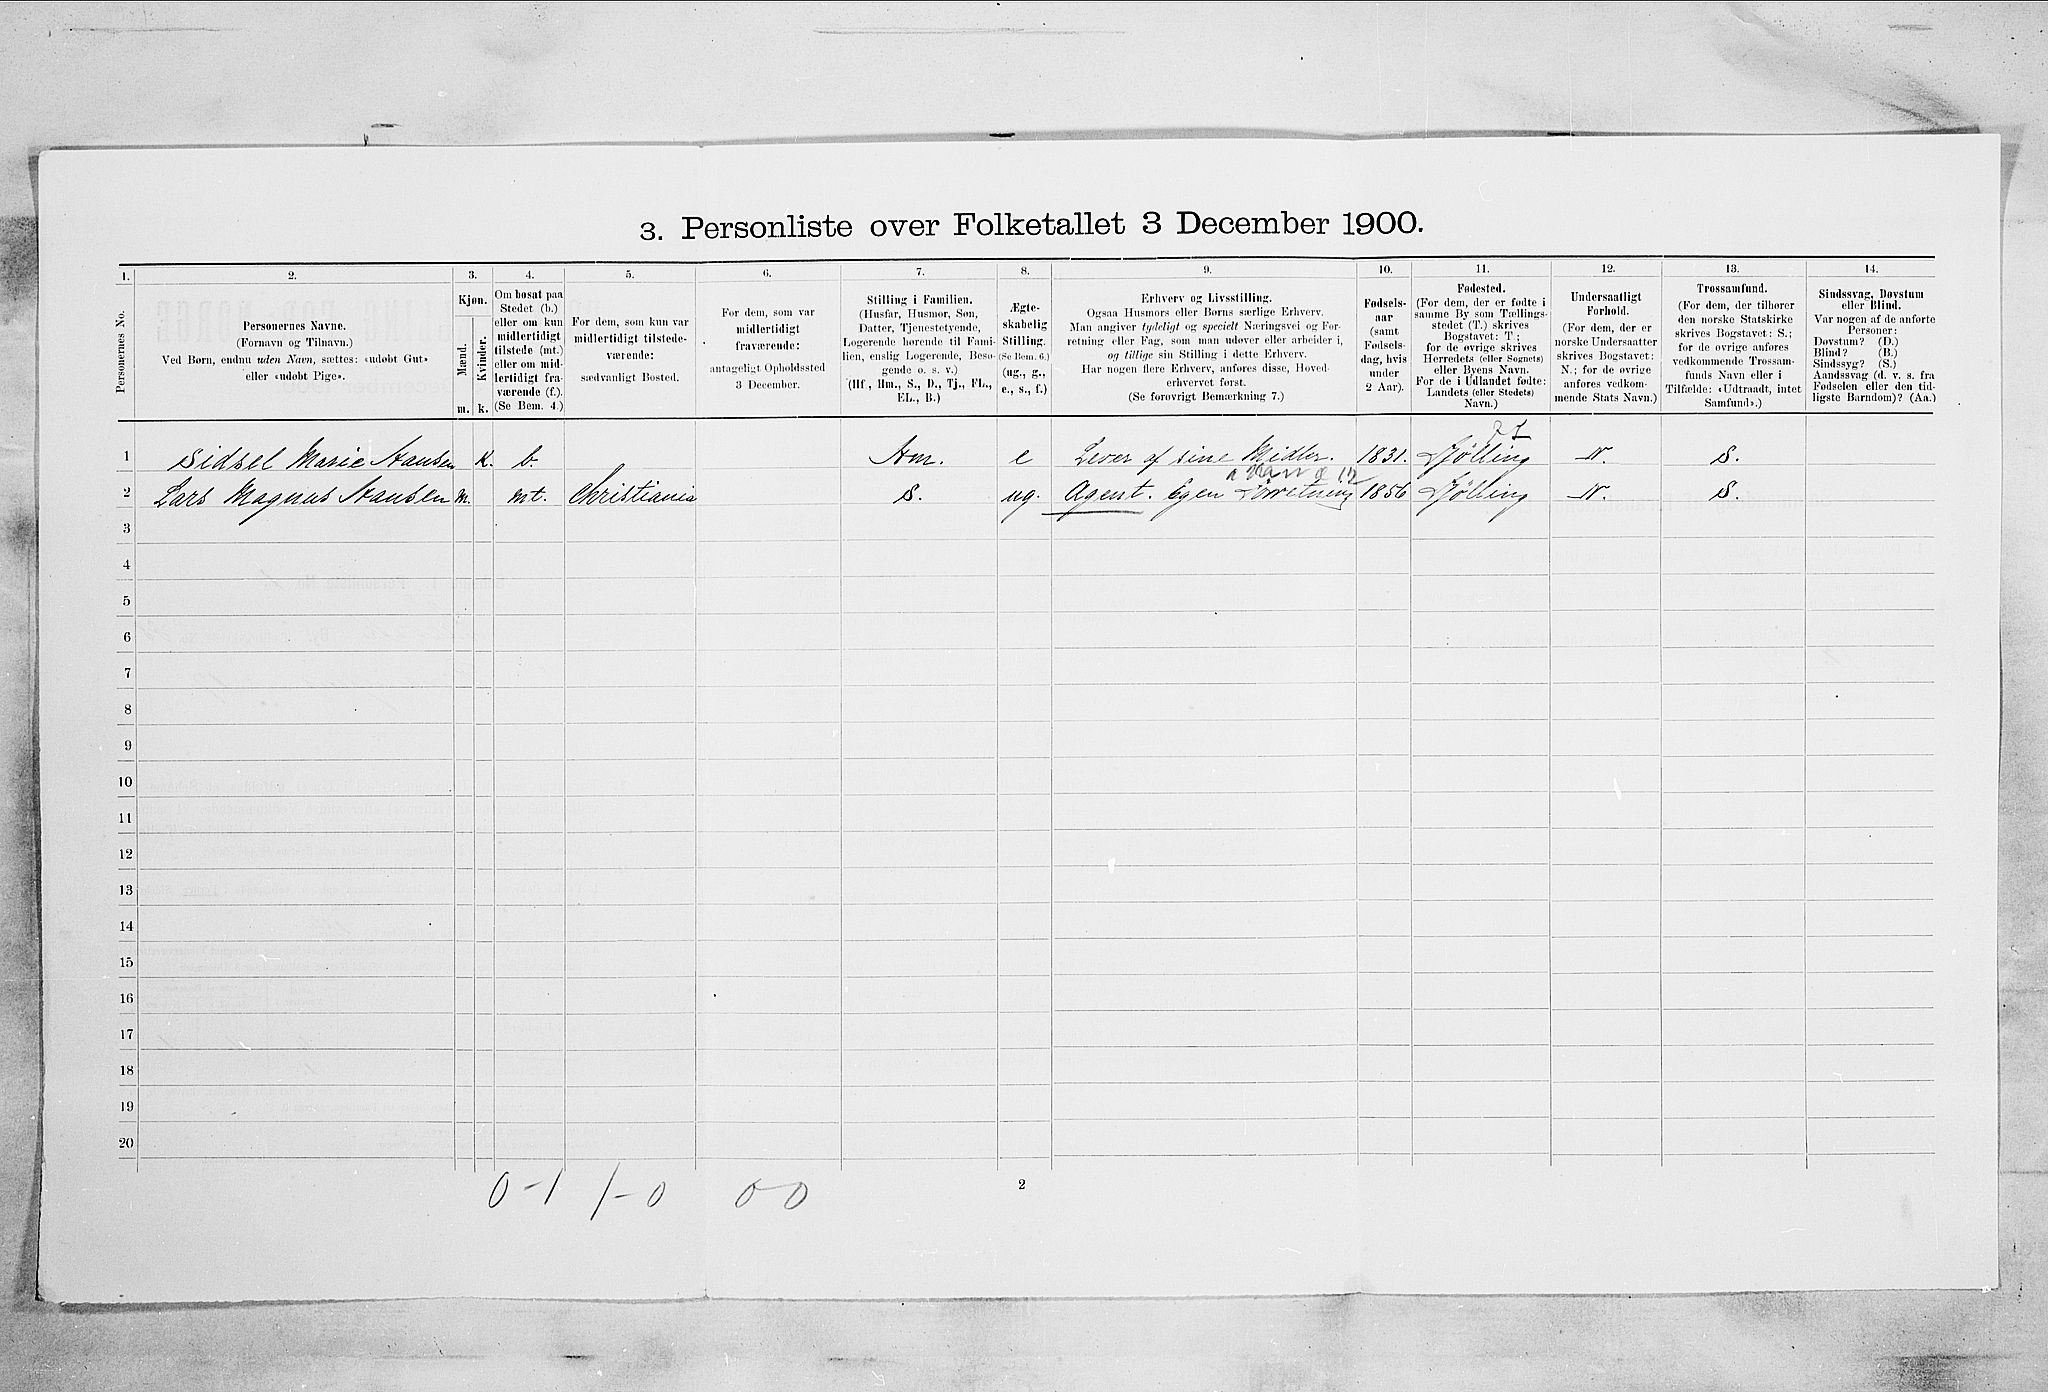 3. Personliste over Folketallet 3 December 1900.
1. 2. 3. 4. 5. 6. 7. 8. 9. 10. 11. 12. 13. 14.
Personernes No.
Personernes Navne.
(Fornavn og Tilnavn.)
Ved Børn, endnu uden Navn, sættes: «udøbt Gut»
eller «udøbt Pige».
Kjøn.
Mænd.
Kvinder.
m. k.
Om bosat paa
Stedet (b.)
eller om kun
midlertidigt
tilstede (mt.)
eller om mid-
lertidigt fra-
værende (f.).
(Se Bem. 4.)
For dem, som kun var
midlertidigt tilstede-
værende:
sædvanligt Bosted.
For dem, som var
midlertidigt
fraværende:
antageligt Opholdssted
3 December.
Stilling i Familien.
(Husfar, Husmor, Søn,
Datter, Tjenestetyende,
Logerende hørende til Fami-
lien, enslig Logerende, Besø-
gende o. s. v.)
(Hf., Hm., S., D., Tj., FL.,
EL., B.)
Ægte-
skabelig
Stilling.
(Se Bem. 6.)
(ug., g.,
e., s., f.)
Erhverv og Livsstilling.
Ogsaa Husmors eller Børns særlige Erhverv.
Man angiver tydeligt og specielt Næringsvei og For-
retning eller Fag, som man udøver eller arbeider i,
og tillige sin Stilling i dette Erhverv.
Har nogen flere Erhverv, anføres disse, Hoved-
erhvervet først.
(Se forøvrigt Bemærkning 7.)
Fødsels-
aar
(samt
Fødsels-
dag, hvis
under
2 Aar).
Fødested.
(For dem, der er fødte i
samme By som Tællings-
stedet (T.) skrives
Bogstavet: T;
for de øvrige skrives
Herredets (eller Sognets)
eller Byens Navn.
For de i Udlandet fødte:
Landets (eller Stedets)
Navn.)
Undersaatligt
Forhold.
(For dem, der er
norske Undersaatter
skrives Bogstavet:
N.; for de øvrige
anføres vedkom-
mende Stats Navn.)
Trossamfund.
(For dem, der tilhører
den norske Statskirke
skrives Bogstavet: S.;
for de øvrige anføres
vedkommende Trossam-
funds Navn eller i
Tilfælde: «Udtraadt, intet
Samfund».)
Sindssvag, Døvstum
eller Blind.
Var nogen af de anførte
Personer:
Døvstum? (D.)
Blind? (B.)
Sindssyg? (S.)
Aandssvag (d. v. s. fra
Fødselen eller den tid-
ligste Barndom)? (Aa.)
1 Sidsel Marie Hansen k. b. Hm. e Lever af sine Midler. 1831. Tjølling N. S.
2 Lars Magnus Hansen m. mt. Christiania S. ug. Agent. Egen Forretning 1856 Tjølling N. S.
3
4
5
6
7
8
9
10
11
12
13
14
15
16
17
18
19
20
0-1 1-0 0-0
2